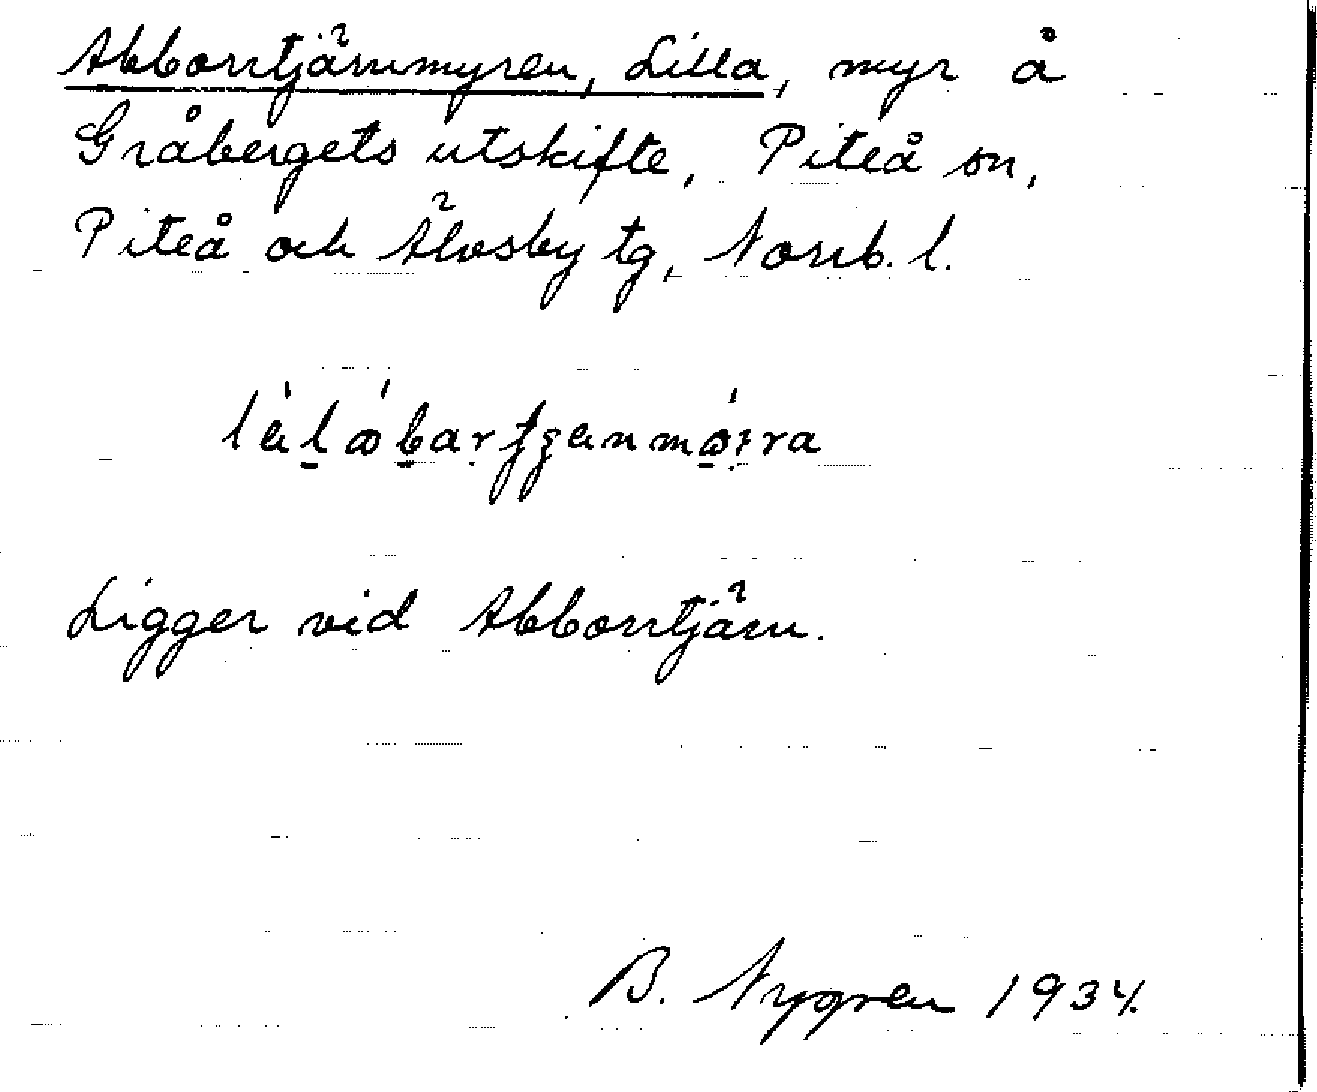 Abborrtjärnmyren, Lilla, myr å
Gråbergets utskifte, Piteå sn,
Piteå och Älvsby tg, Norrb. l.
Ligger vid Abborrtjärn.
B. Nygren 1934.